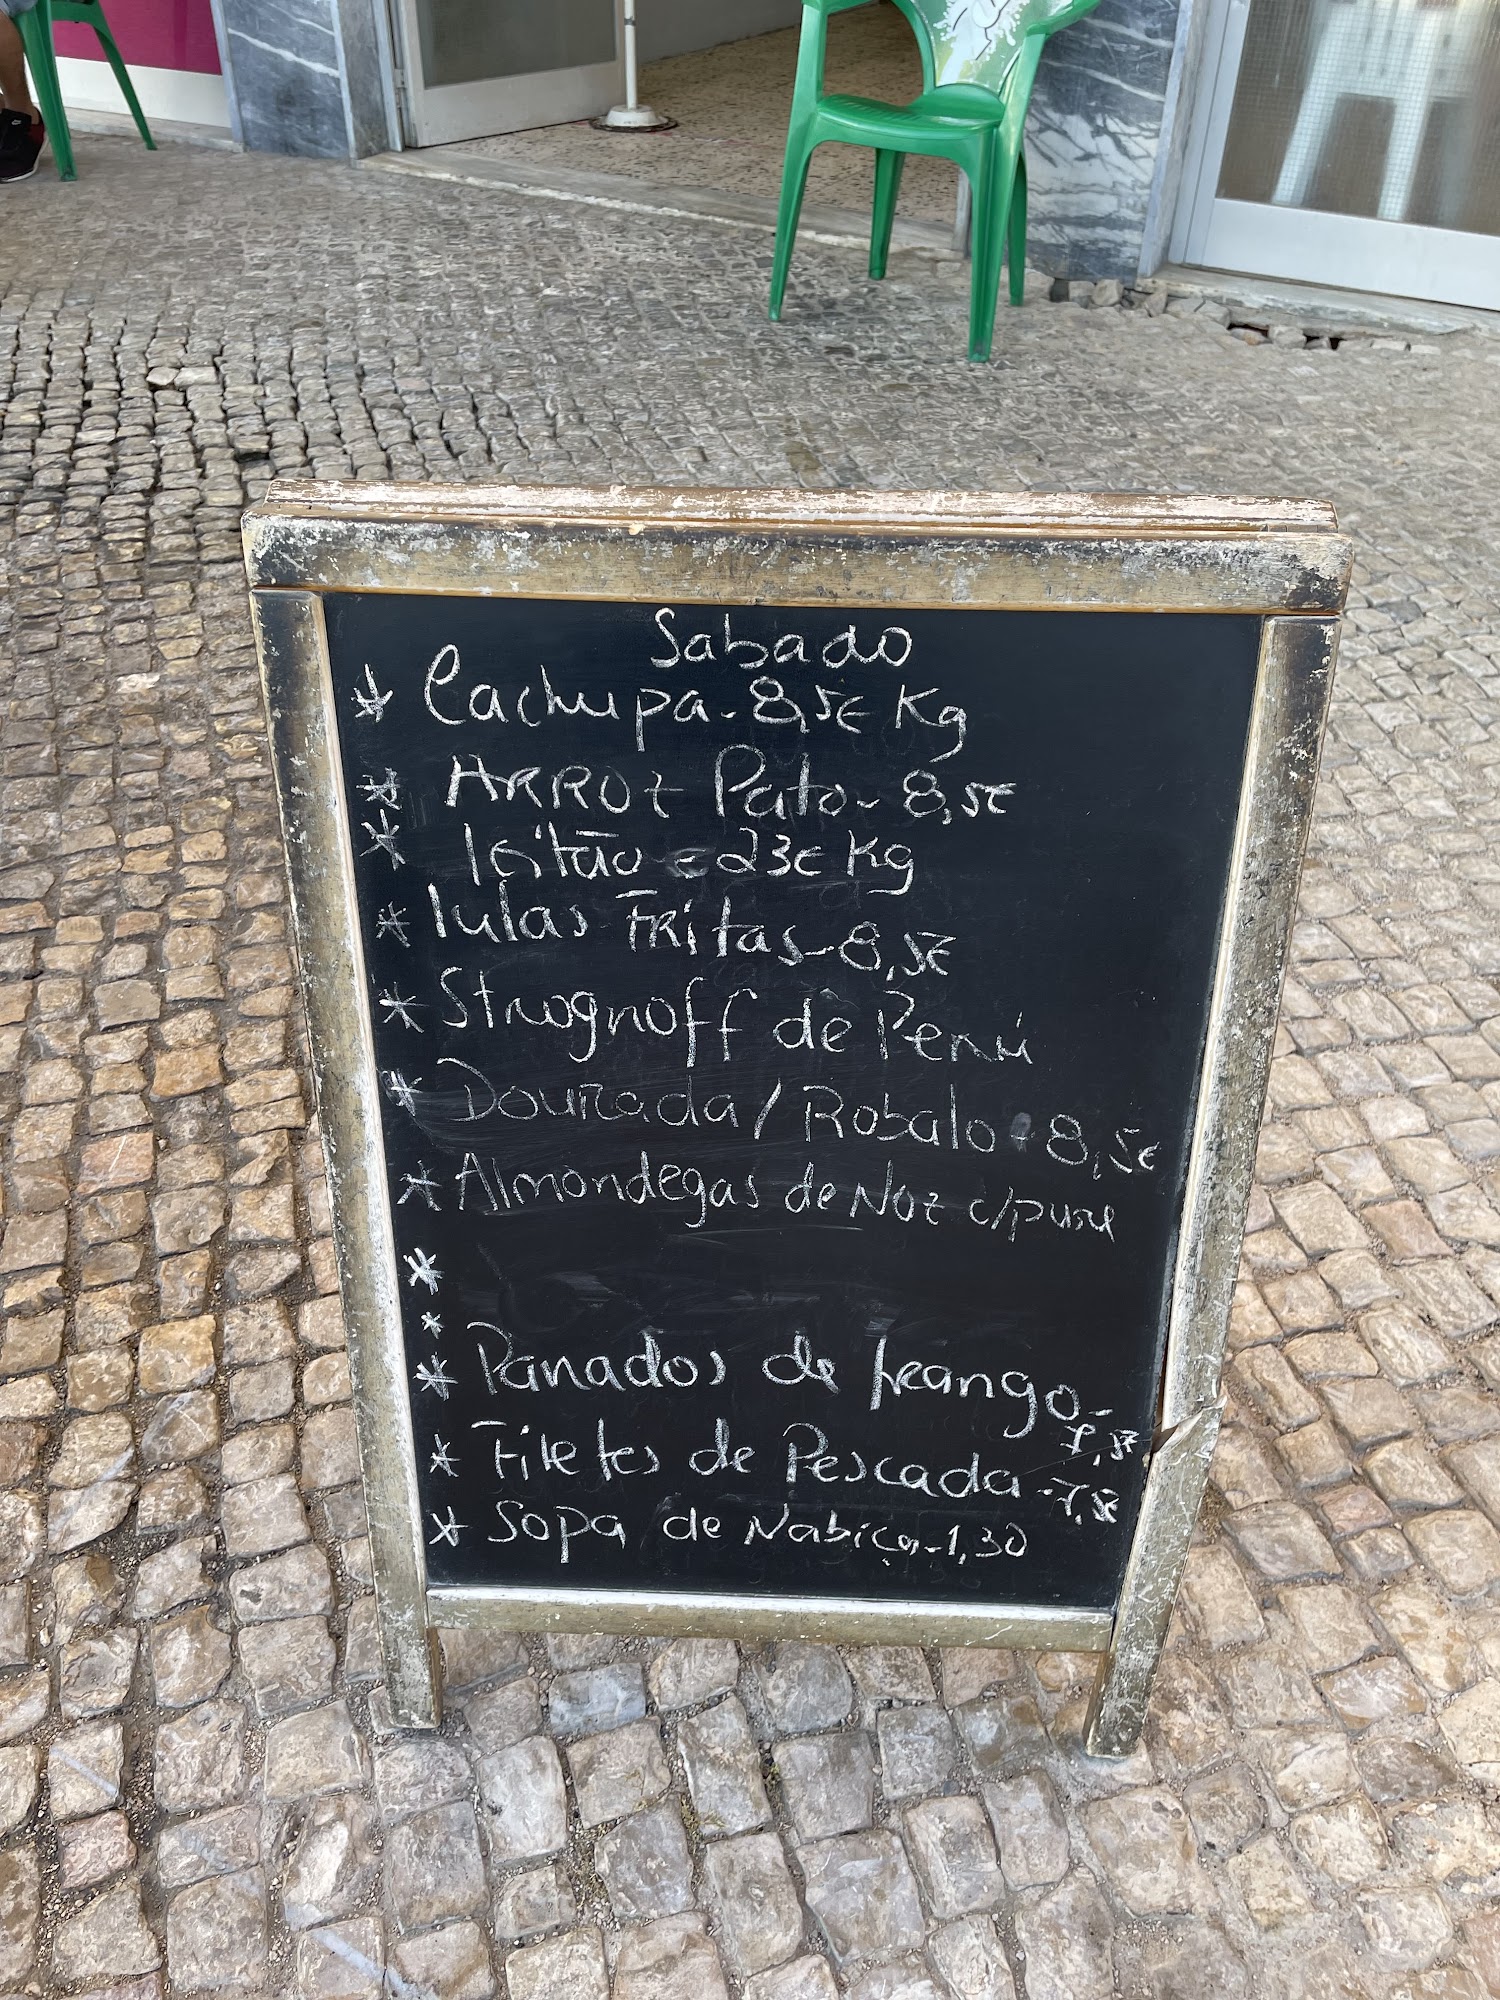 Sabado
* Cachupa - 8,5€ Kg
* ARROZ Pato - 8,5€
* leitão - 23€ Kg
* lulas FRitas - 8,5€
* Strognoff de Perú
* Dourada / Robalo - 8,5€
* Almondegas de Noz c/pure
*
*
* Panados de frango -
7,5€
* Filetes de Pescada - 7,5€
* Sopa de Nabiça - 1,30